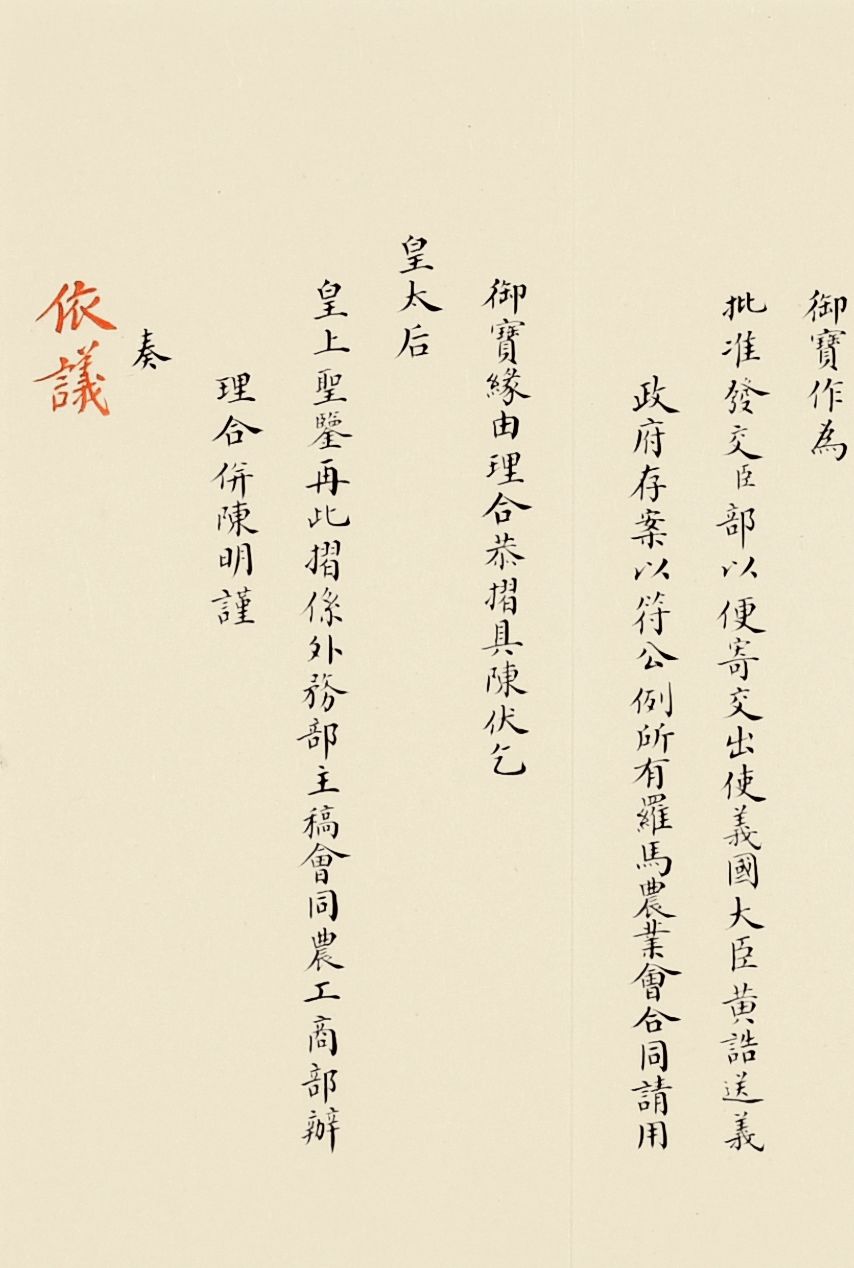 御寶作為
批准發交臣部以便寄交出使義國大臣黃誥送義
政府存案以符公例所有羅馬農業會合同請用
御寶緣由理合恭摺具陳伏乞
皇太后
皇上聖鑒再此摺係外務部主稿會同農工商部辦
理合併陳明謹
奏
依議